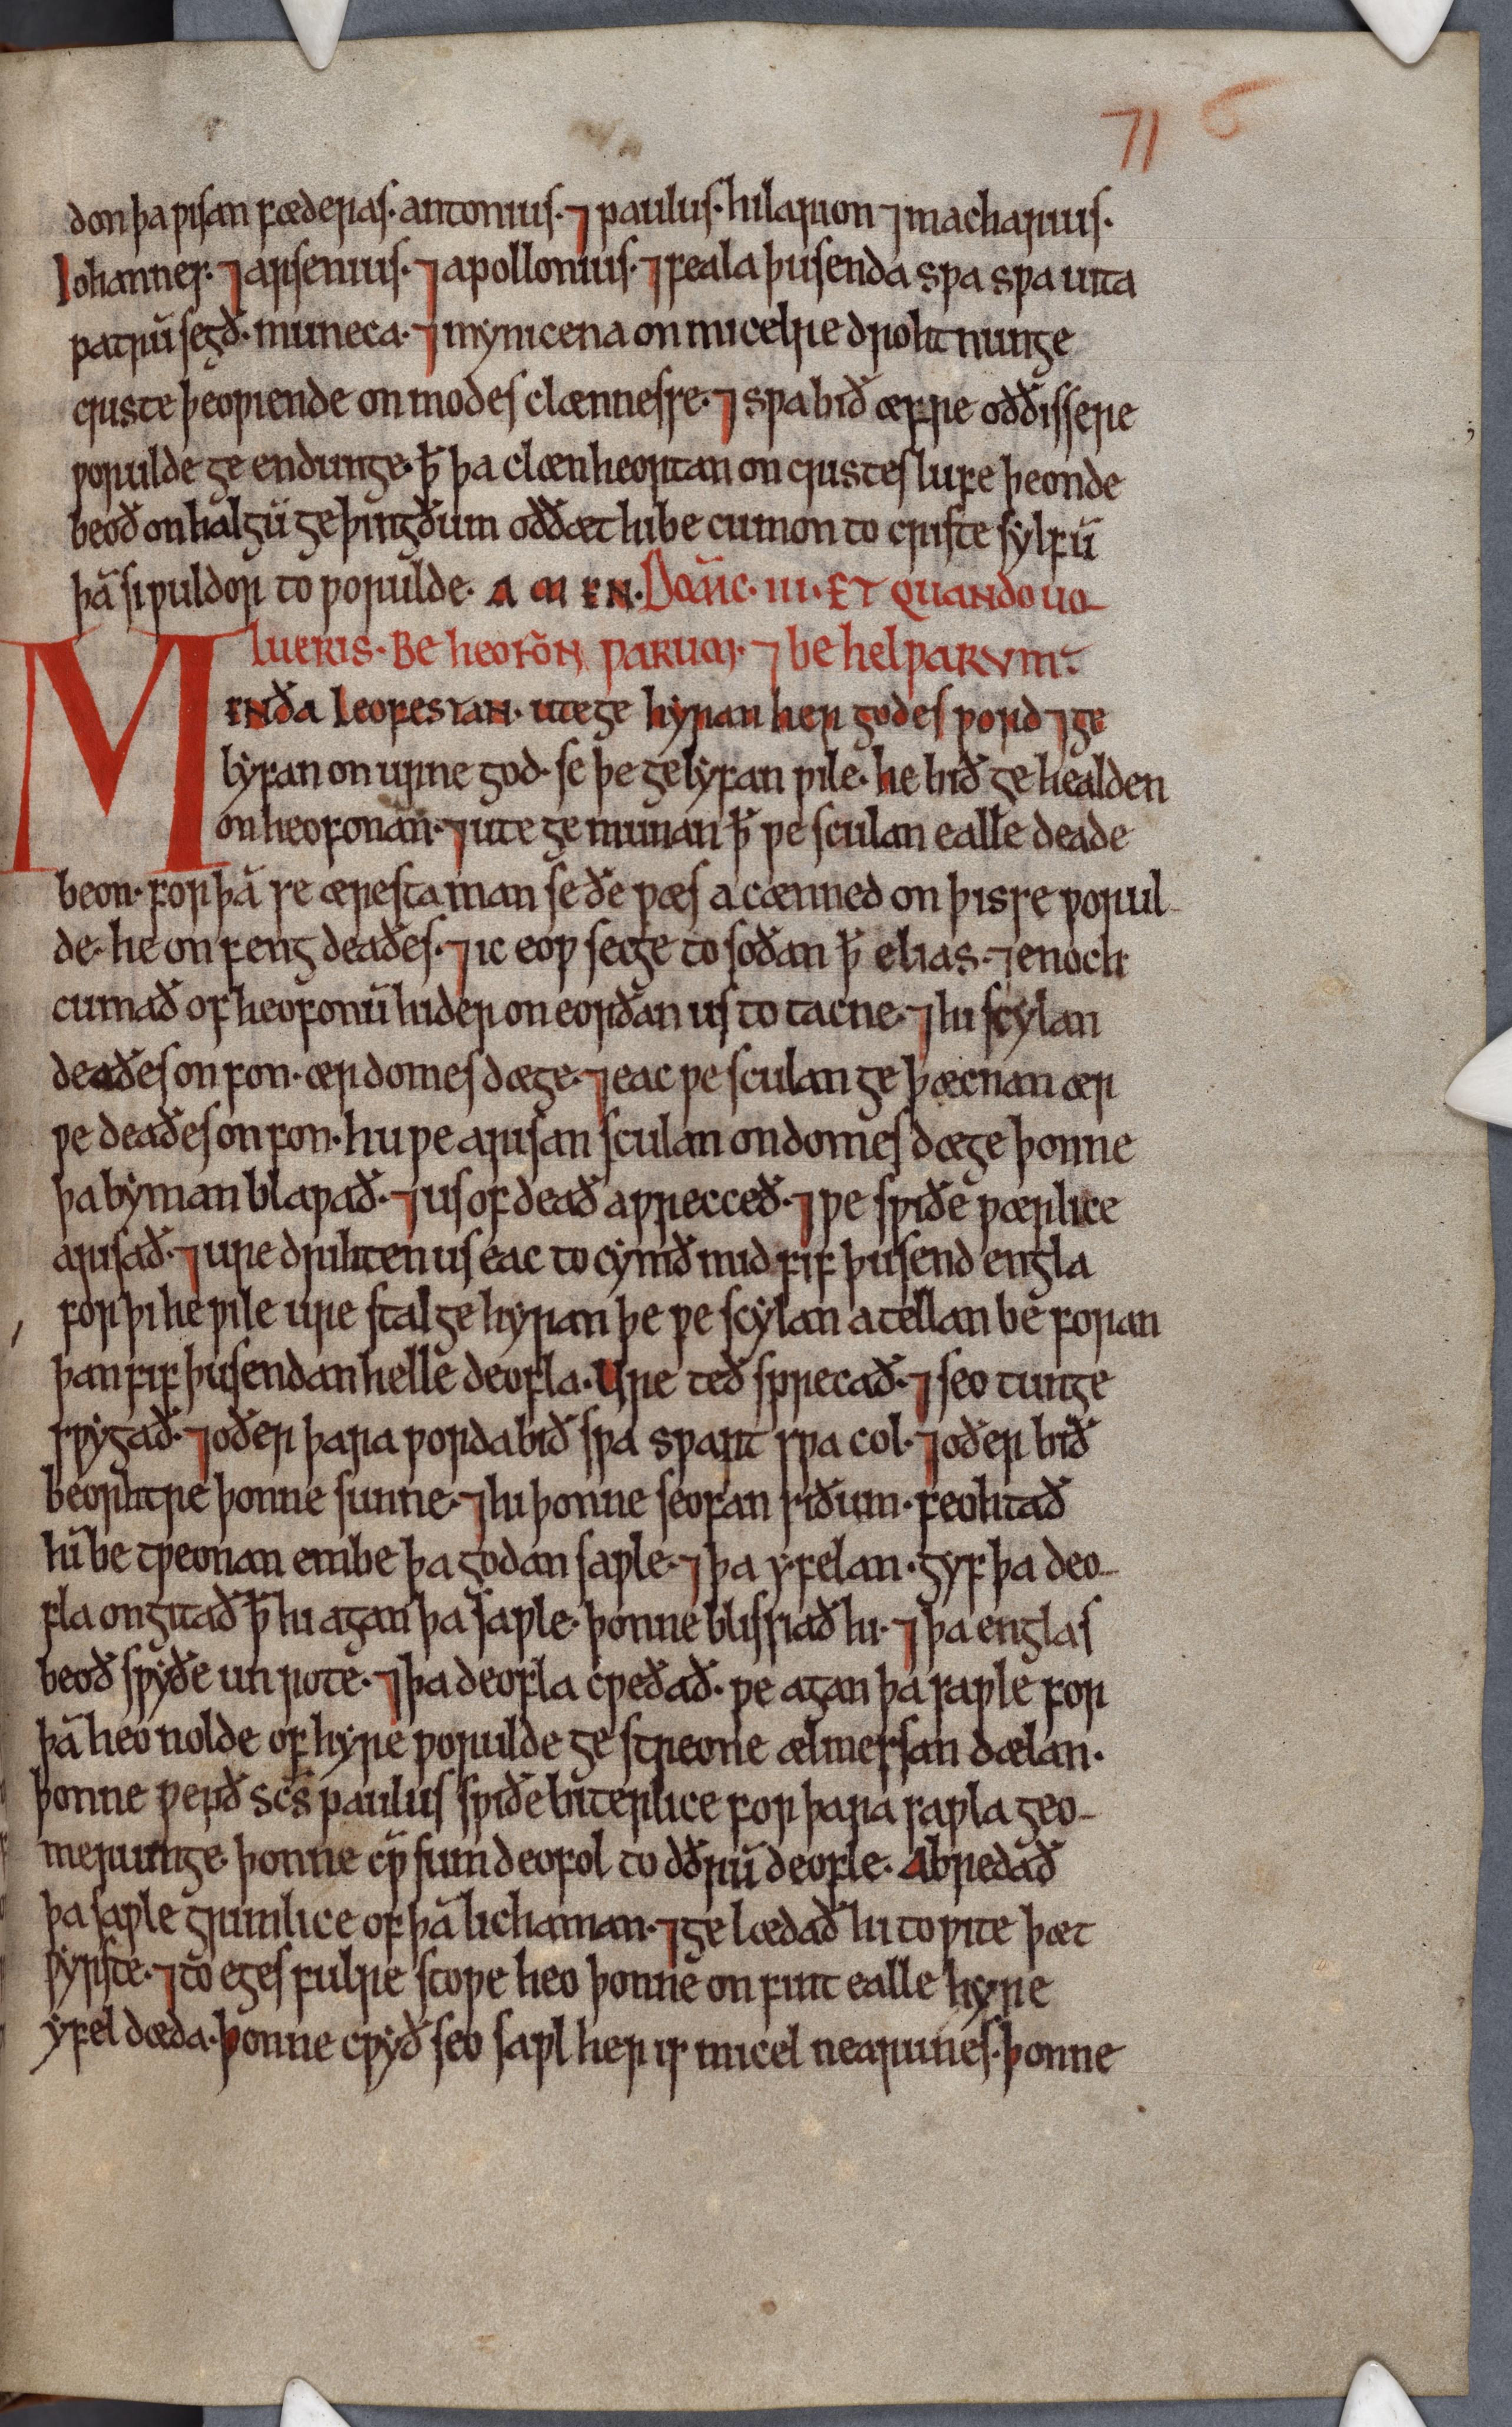 71 6
don þa ƿisan fæderas· antonius· ⁊ paulus· hilarion ⁊ macharius·
Iohannes· ⁊ arsenius· ⁊ apollonius· ⁊ feala þusenda sƿa sƿa uita
patrū segð· muneca· ⁊ mynicena on micelre drohtnunge
criste þeoƿiende on modes clænnesse· ⁊ sƿa bið æfre oð ðissere
ƿorulde ge endunge· ꝥ þa clæn heortan on cristes lufe þeonde
beoð on halgū geþingðum oððæt hi be cumon to criste sylfū
þā si ƿuldor to ƿorulde· AMEN· Domīc· III· ET QUANDO UO-
LUERIS· Be heofōN ƿARUM· ⁊ be helƿARUM·
MENÐA leofestAN· ute ge hyran her godes ƿord ⁊ ge
lyfan on urne god· se þe gelyfan ƿile· he bið ge healden
on heofonan· ⁊ ute ge munan ꝥ ƿe sculan ealle deade
beon· for þā se æresta man se ðe ƿæs acænned on þisre ƿorul-
de· he onfeng deaðes· ⁊ ic eoƿ secge to soðan ꝥ elias· ⁊ enoch
cumað of heofonū hider on eorðan us to tacne· ⁊ hi scylan
deaðes onfon· ær domes dæge· ⁊ eac ƿe sculan ge þæcnan ær
ƿe deaðes onfon· hu ƿe arisan sculan on domes dæge þonne
þa byman blaƿað· ⁊ us of deað aƿrecceð· ⁊ ƿe sƿiðe ƿærlice
arisað· ⁊ ure drihten us eac to cymð mid fif þusend engla
for þi he ƿile ure stal ge hyran þe ƿe scylan atellan be foran
þan fif þusendan helle deofla· Ure teð sprecað· ⁊ seo tunge
sƿygað· ⁊ oðer þara ƿorda bið sƿa sƿart sƿa col· ⁊ oðer bið
beorhtre þonne sunne· ⁊ hi þonne seofan siðum· feohtað
hī be tƿeonan embe þa godan saƿle· ⁊ þa yfelan· gyf þa deo-
fla ongitað ꝥ hi agan þa saƿle· þonne blissiað hi· ⁊ þa englas
beoð sƿyðe unrote· ⁊ þa deofla cƿeðað· ƿe agan þa saƿle for
þā heo nolde of hyre ƿorulde ge streone ælmessan dælan·
þonne ƿepð sc̄s paulus sƿiðe biterlice for þara saƿla geo-
merunge· þonne cƿ̄ sum deofol to oðrū deofle· Abredað
þa saƿle grimlice of þā lichaman· ⁊ ge lædað hi to ƿite þæt
ƿyrste· ⁊ to egesfulre stoƿe heo þonne onfint ealle hyre
yfel dæda· þonne cƿyð seo saƿl her is micel nearunes· þonne